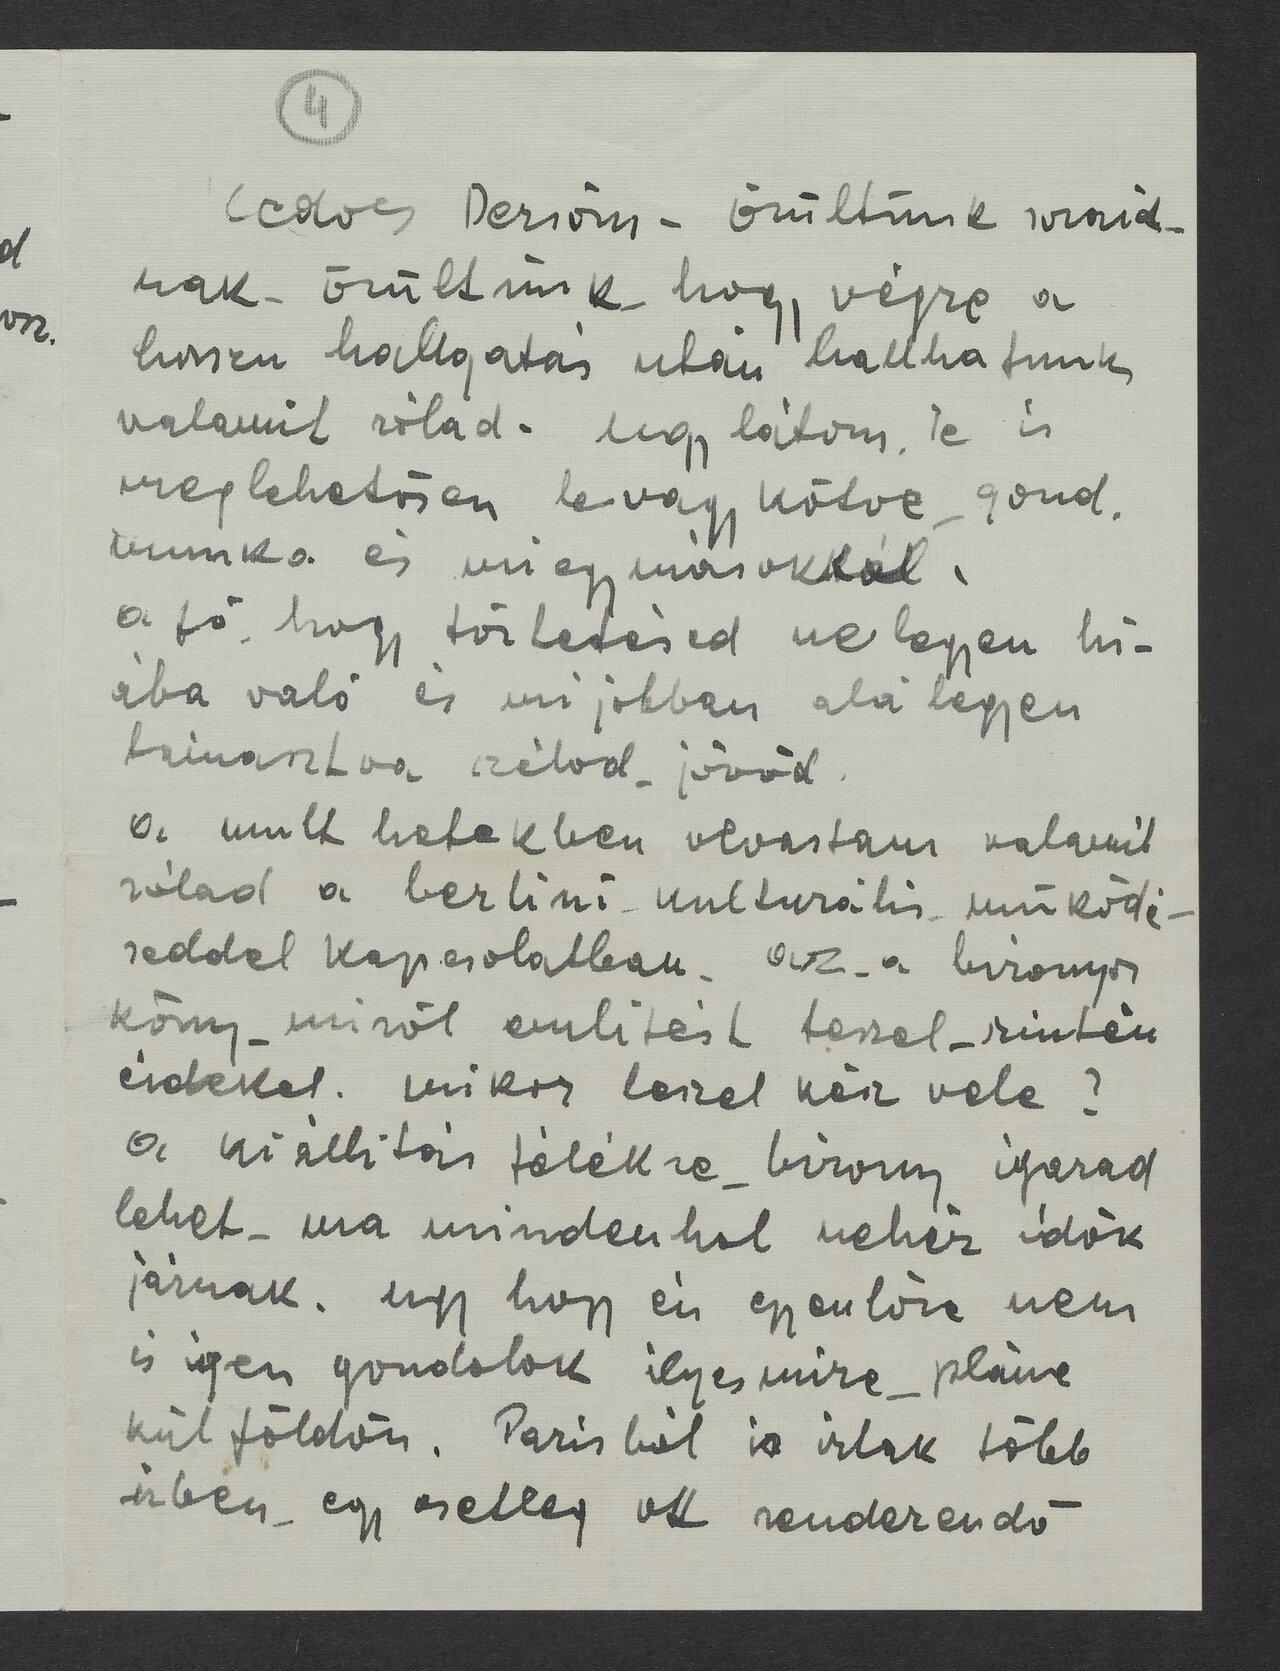 4
Kedves Dezsőm - örültünk soraid-
nak - örültünk - hogy végre a
hosszu hallgatás után hallhatunk
valamit rólad. ugy látom, te is
meglehetősen le vagy kötve - gond,
munka és miegymásokkal.
a fő, hogy törtetésed ne legyen hi-
ába való és mi jobban alá legyen
támasztva célod - jövőd.
a mult hetekben olvastam valamit
rólad a berlini - kulturális - müködé-
seddel kapcsolatban. az - a bizonyos
köny - miről emlitést teszel - szintén
érdekel. mikor leszel kész vele?
a kiállitás félékre - bizony igazad
lehet - ma mindenhol nehéz idők
járnak. ugy hogy én egyenlőre nem
is igen gondolok ilyesmire - pláne
külföldön. Parisból is irtak több
izben - egy esetleg ott rendezendő
d